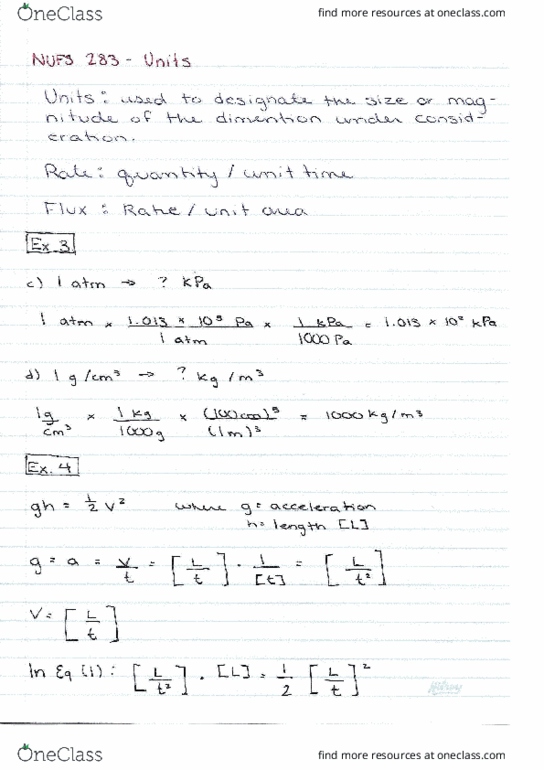 OneClass find more resources at oneclass.com
NUFS 283 - Units
Units: used to designate the size or mag-
nitude of the dimention under consid-
eration.
Rate: quantity / unit time
Flux: Rate / unit area
Ex. 3
c) 1 atm → ? kPa
1 atm × 1.013 × 10⁵ Pa / 1 atm × 1 kPa / 1000 Pa = 1.013 × 10² kPa
d) 1 g/cm³ → ? kg/m³
1g/cm³ × 1 kg/1000g × (100cm)³/(1m)³ = 1000 kg/m³
Ex. 4
gh = 1/2 v² where g = acceleration
h = length [L]
g = a = v/t = [L/t] · 1/[t] = [L/t²]
V = [L/t]
In Eq (1): [L/t²] · [L] = 1/2 [L/t]²
OneClass find more resources at oneclass.com